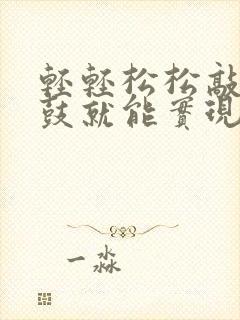 輕輕松松敲
鼓就能實現
一淼